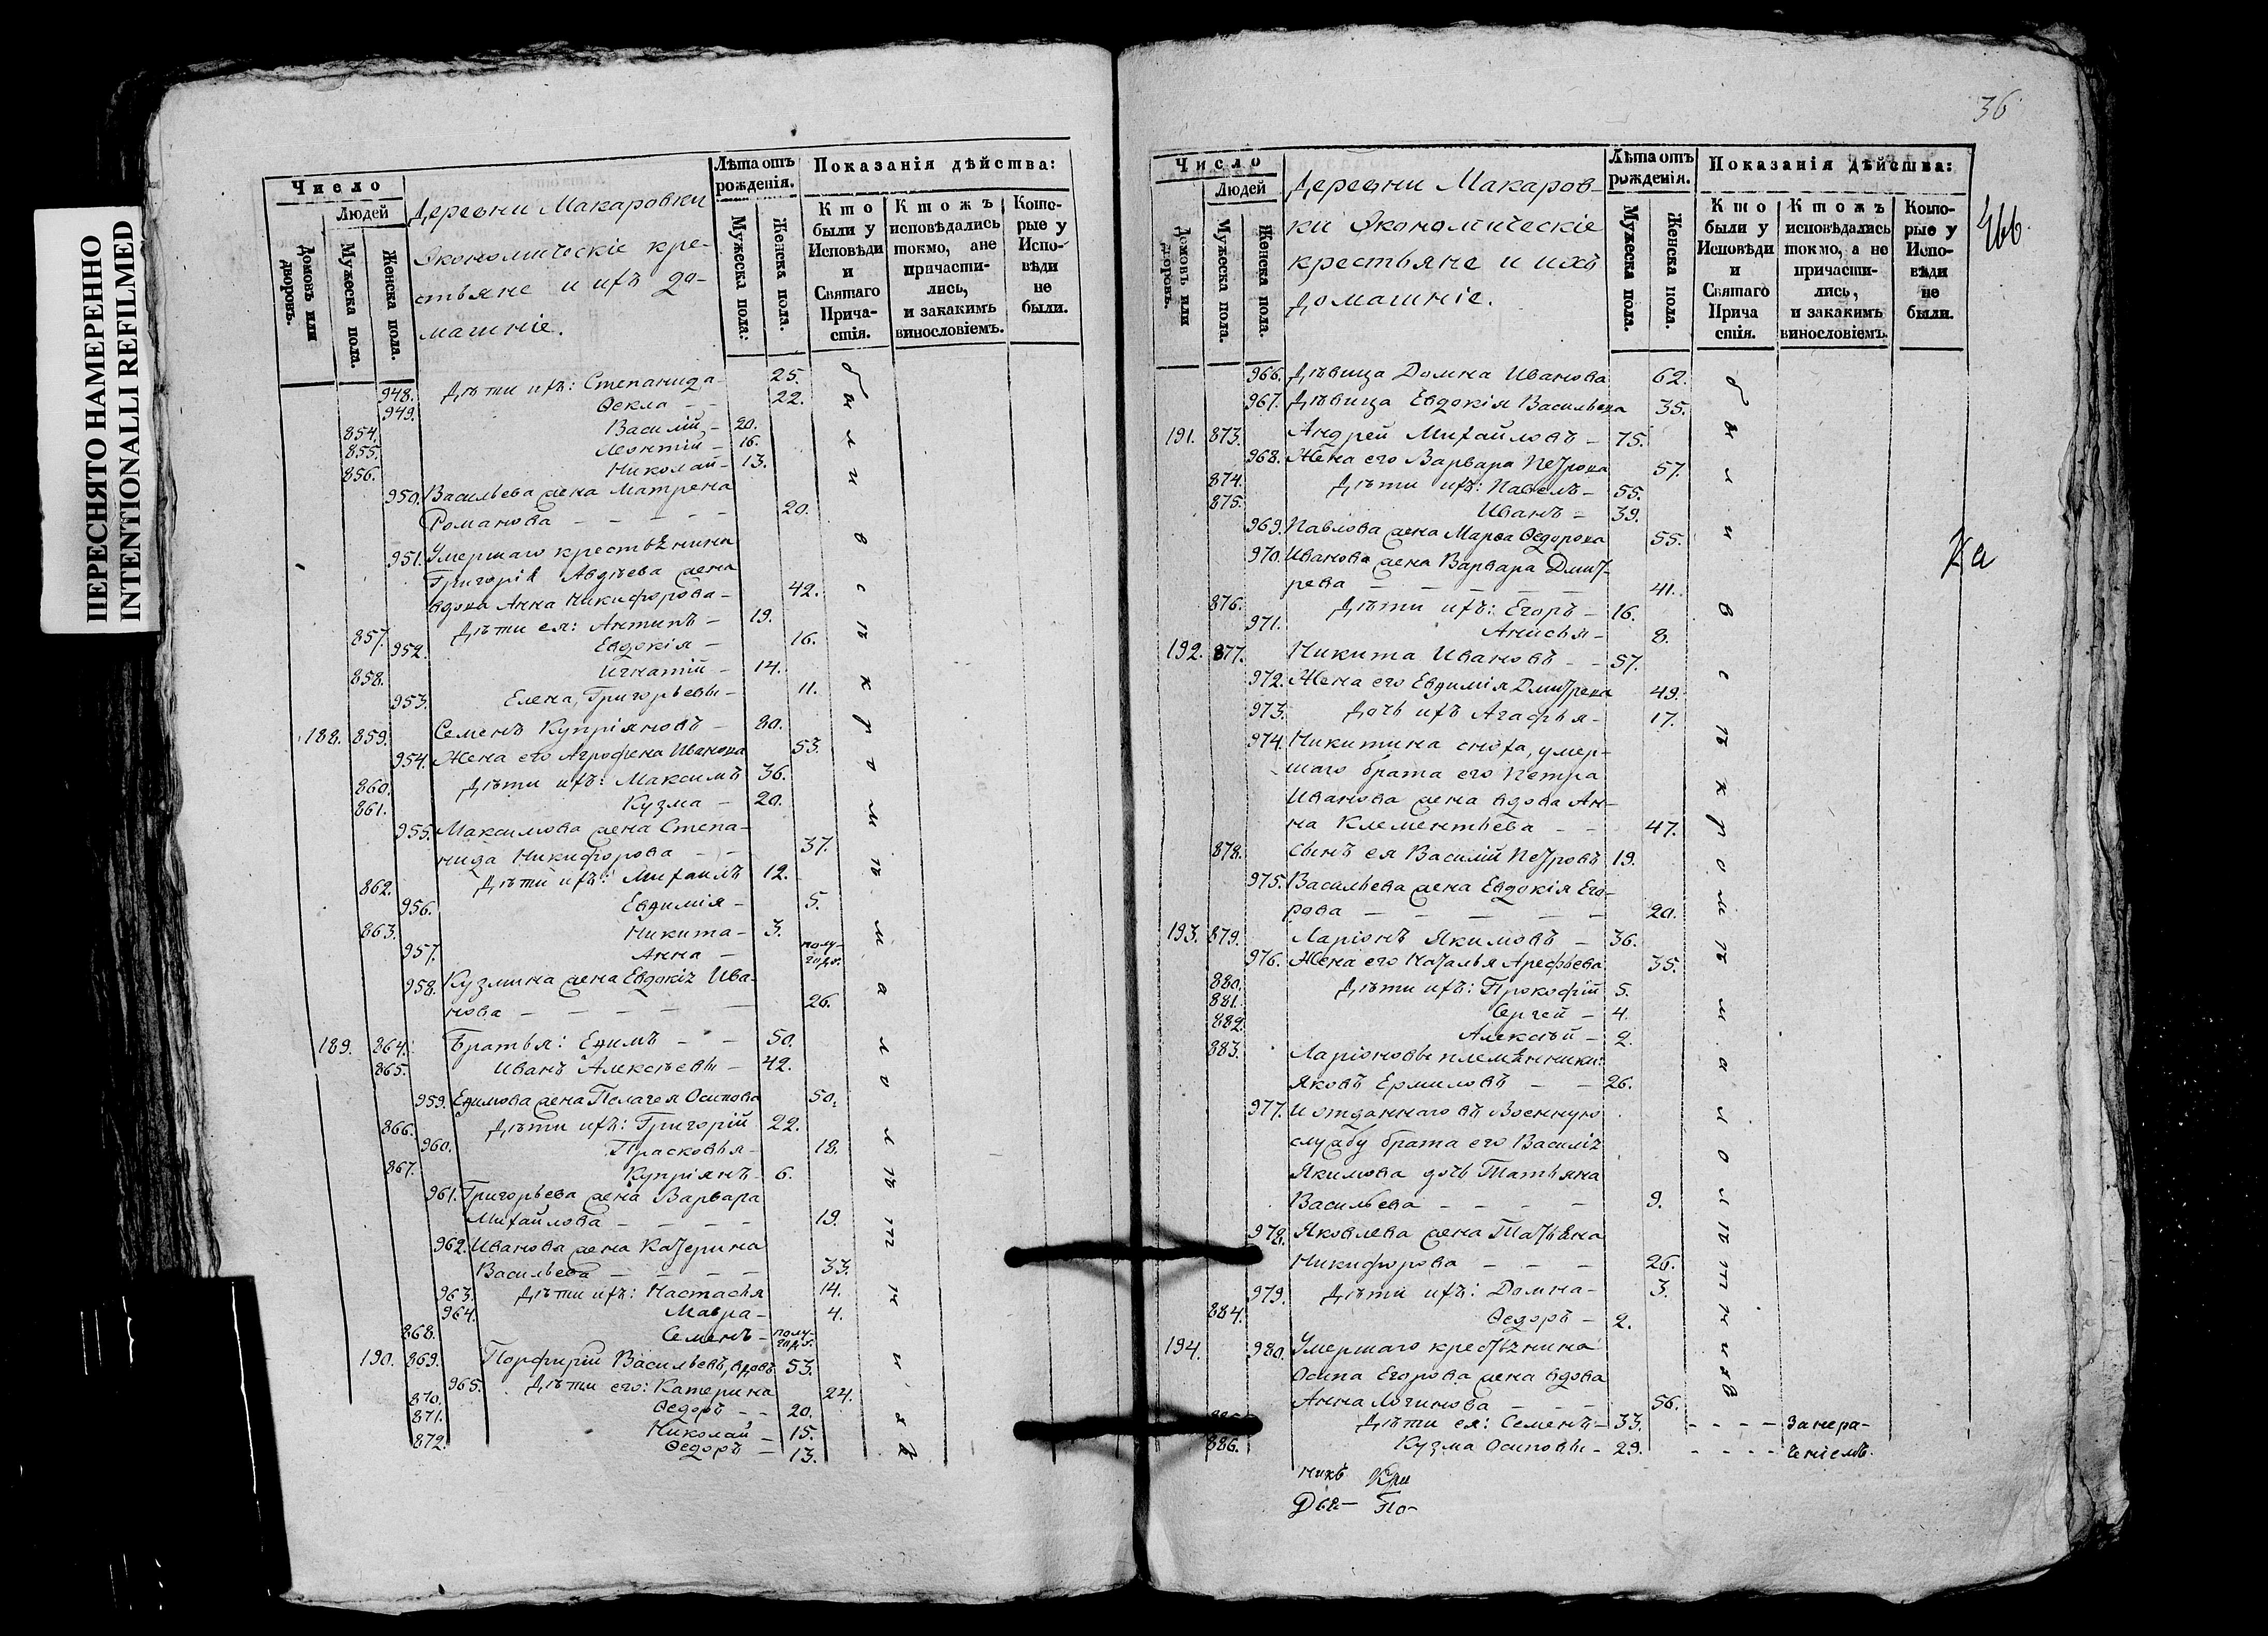 ПЕРЕСНЯТО НАМЕРЕННО
INTENTIONALLI REFILMED
Число
Людей
Домовъ или дворовъ.
Мужеска пола.
Женска пола.
Деревни Макаровки
Экономическіе кре-
стьяне и ихъ до-
машніе.
Лѣта отъ рожденія.
Мужеска пола.
Женска пола.
Показанія дѣйства:
Кто были у Исповѣди и Святаго Прича-стія.
Ктожъ исповѣдались токмо, ане причасти-лись, и закакимъ винословіемъ.
Кото-рые у Испо-вѣди не были.
948. Дѣти ихъ: Степанида 25.
949. Ѳекла - - 22.
854. Василій - 20.
855. Леонтій - 16.
856. Николай - 13.
950. Васильева жена Матрена
Романова - - - - - 20.
951. Умершаго крестьѣнина
Григорія Авдѣева жена
вдова Анна Никифорова - 42.
857. Дѣти ея: Антипъ - 19.
952. Евдокія - 16.
858. Игнатій - 14.
953. Елена, Григорьевы - 11.
188. 859. Семенъ Купріяновъ - 80.
954. Жена его Агрофена Иванова 53.
860. Дѣти ихъ: Максимъ 36.
861. Кузма - 20.
955. Максимова жена Степа-
нида Никифорова - - 37.
862. Дѣти ихъ: Михаилъ 12.
956. Евфимія - 5.
863. Никита - 3.
957. Анна - полу-года.
958. Кузмина жена Евдокія Ива-
нова - - - - - 26.
189. 864. Братья: Ефимъ - - 50.
865. Иванъ Алексѣевы - 42.
959. Ефимова жена Пелагея Осипова 50.
866. Дѣти ихъ: Григорій 22.
960. Прасковья - 18.
867. Купріянъ - 6.
961. Григорьева жена Варвара
Михайлова - - - - 19.
962. Иванова жена Катерина
Васильева - - - - 33.
963. Дѣти ихъ: Настасья 14.
964. Мавра - 4.
868. Семенъ - полу-года.
190. 869. Порфирій Васильевъ, вдовъ 53.
965. Дѣти его: Катерина 24.
870. Ѳедоръ - - 20.
871. Николай - 15.
872. Ѳедоръ - 13.
были в с ѣ к р о м ѣ м а л о л ѣ т н и х ъ
36
466.
Число
Людей
Домовъ или дворовъ.
Мужеска пола.
Женска пола.
Деревни Макаров-
ки Экономическіе
крестьяне и ихъ
домашніе.
Лѣта отъ рожденія.
Мужеска пола.
Женска пола.
Показанія дѣйства:
Кто были у Исповѣди и Святаго Прича стія.
Ктожъ исповѣдались токмо, а не причасти-лись, и закакимъ винословіемъ.
Кото-рые у Испо-вѣди не были.
966. Дѣвица Домна Иванова 62.
967. Дѣвица Евдокія Васильева 35.
191. 873. Андрей Михайловъ - 75.
968. Жена его Варвара Петрова 57.
874. Дѣти ихъ: Павелъ - 55.
875. Иванъ - 39.
969. Павлова жена Марѳа Ѳедорова 55.
970. Иванова жена Варвара Дмит-
рева - - - - - 41.
876. Дѣти ихъ: Егоръ - 16.
971. Анисья - 8.
192. 877. Никита Ивановъ - - 57.
972. Жена его Евфимія Дмитрева 49.
973. Дочь ихъ Агафья - 17.
974. Никитина сноха, умер-
шаго брата его Петра
Иванова жена вдова Ан-
на Клементьева - - 47.
878. Сынъ ея Василій Петровъ 19.
975. Васильева жена Евдокія Его-
рова - - - - - 20.
193. 879. Ларіонъ Якимовъ - 36.
976. Жена его Наталья Арефьева 35.
880. Дѣти ихъ: Прокофій 5.
881. Сергей - 4.
882. Алексѣй - 2.
883. Ларіоновы племѣнники:
Яковъ Ермиловъ - - 26.
977. и отданнаго въ военную
службу брата его Василія
Якимова дочь Татьяна
Васильева - - - - 9.
978. Яковлева жена Татьѣна
Никифорова - - - 26.
979. Дѣти ихъ: Домна - 3.
884. Ѳедоръ - 2.
194. 980. Умершаго крестьѣнина
Осипа Егорова жена вдова
Анна Логинова - - - 56.
Дѣти ея: Семенъ - 33. - - - - занера-
886. Кузма Осиповы - 29. - - - - ченіемъ.
были в с ѣ к р о м ѣ м а л о л ѣ т н и х ъ